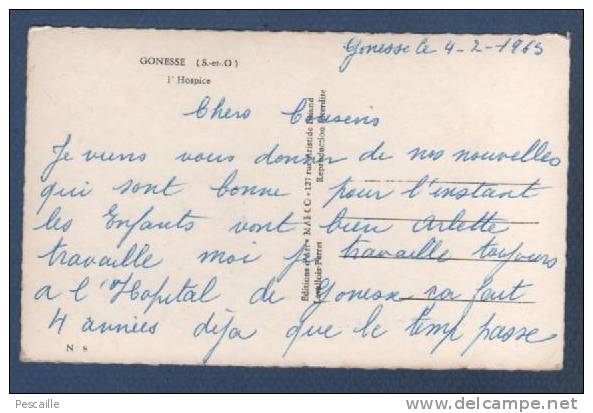 Gonesse le 4-2-1965
GONESSE (S.-et-.O)
l' Hospice
Chers Cousins
Je viens vous donner de nos nouvelles
qui sont bonne pour l'instant
les Enfants vont bien Arlette
travaille moi je travaille toujours
a l'Hopital de Gonesse ça fait
4 années déja que le temp passe
N 8
Editions d'Art • MARCO • 127 rue Aristide Briand
Levallois-Perret Reproduction interdite
Pescaille
www.delcampe.net